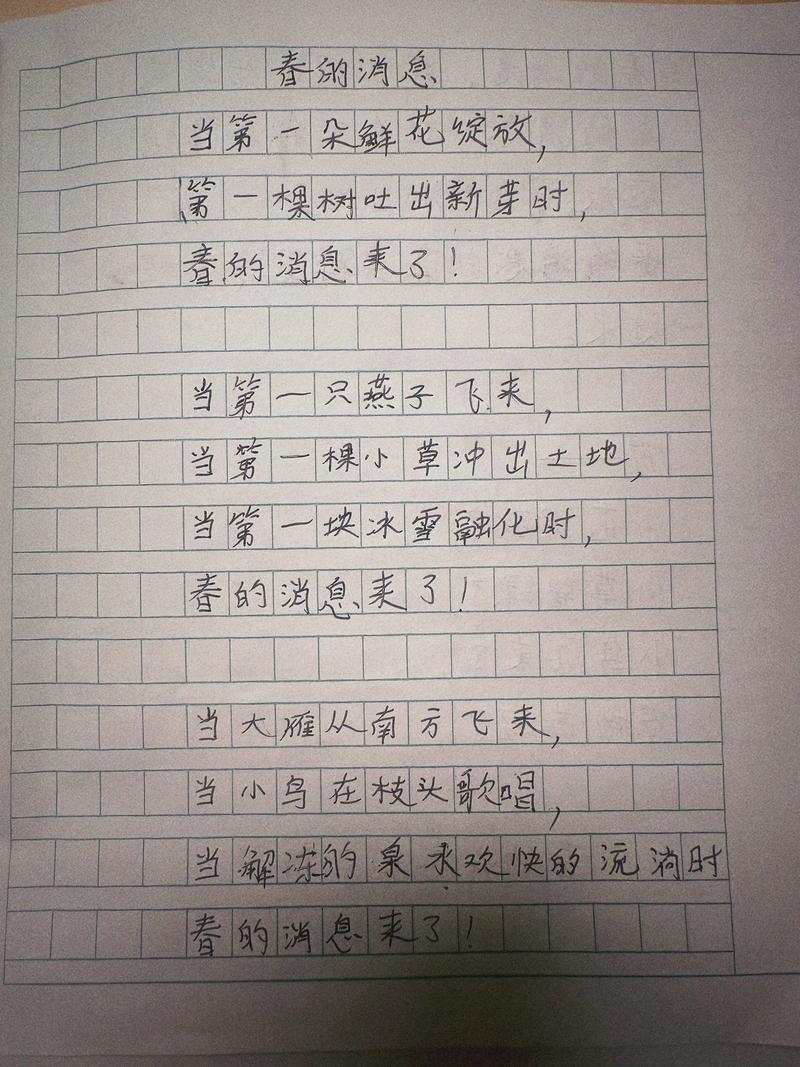 春的消息
当第一朵鲜花绽放,
第一棵树吐出新芽时,
春的消息来了!
当第一只燕子飞来,
当第一棵小草冲出土地,
当第一块冰雪融化时,
春的消息来了!
当大雁从南方飞来,
当小鸟在枝头歌唱,
当解冻的泉水欢快的流淌时
春的消息来了!